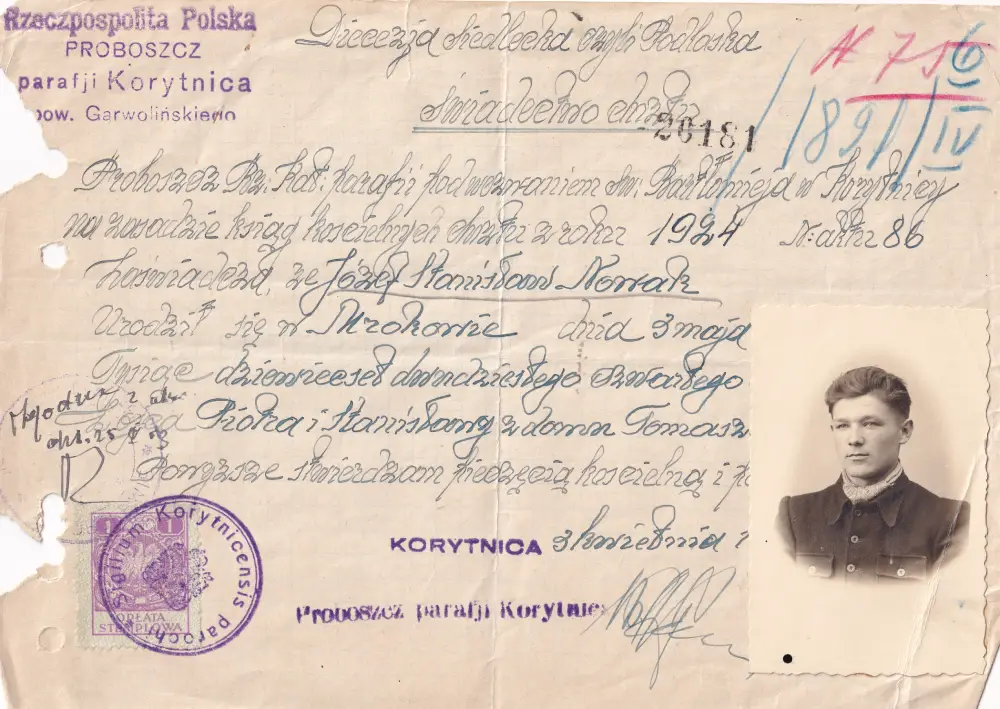 Rzeczpospolita Polska
PROBOSZCZ
parafji Korytnica
pow. Garwolińskiego
Diecezja Siedlecka czyli Podlaska
Świadectwo chrztu
26181
N 75
6
IV
1891
Proboszcz Rz. Kat. parafii pod wezwaniem św. Bartłomieja w Korytnicy
na zasadzie ksiąg kościelnych chrztu z roku 1924 N: aktu 86
Zaświadcza, że Józef Stanisław Nowak
Urodził się w Mrokowie dnia 3 maja
Tysiąc dziewięćset dwudziestego czwartego
Piotra i Stanisławy z domu Tomasz
Powyższe stwierdzam pieczęcią kościelną i
KORYTNICA 3 kwietnia
Proboszcz parafji Korytnic
Sigillum Korytnicensis paroch
1 1
OPŁATA
STEMPLOWA